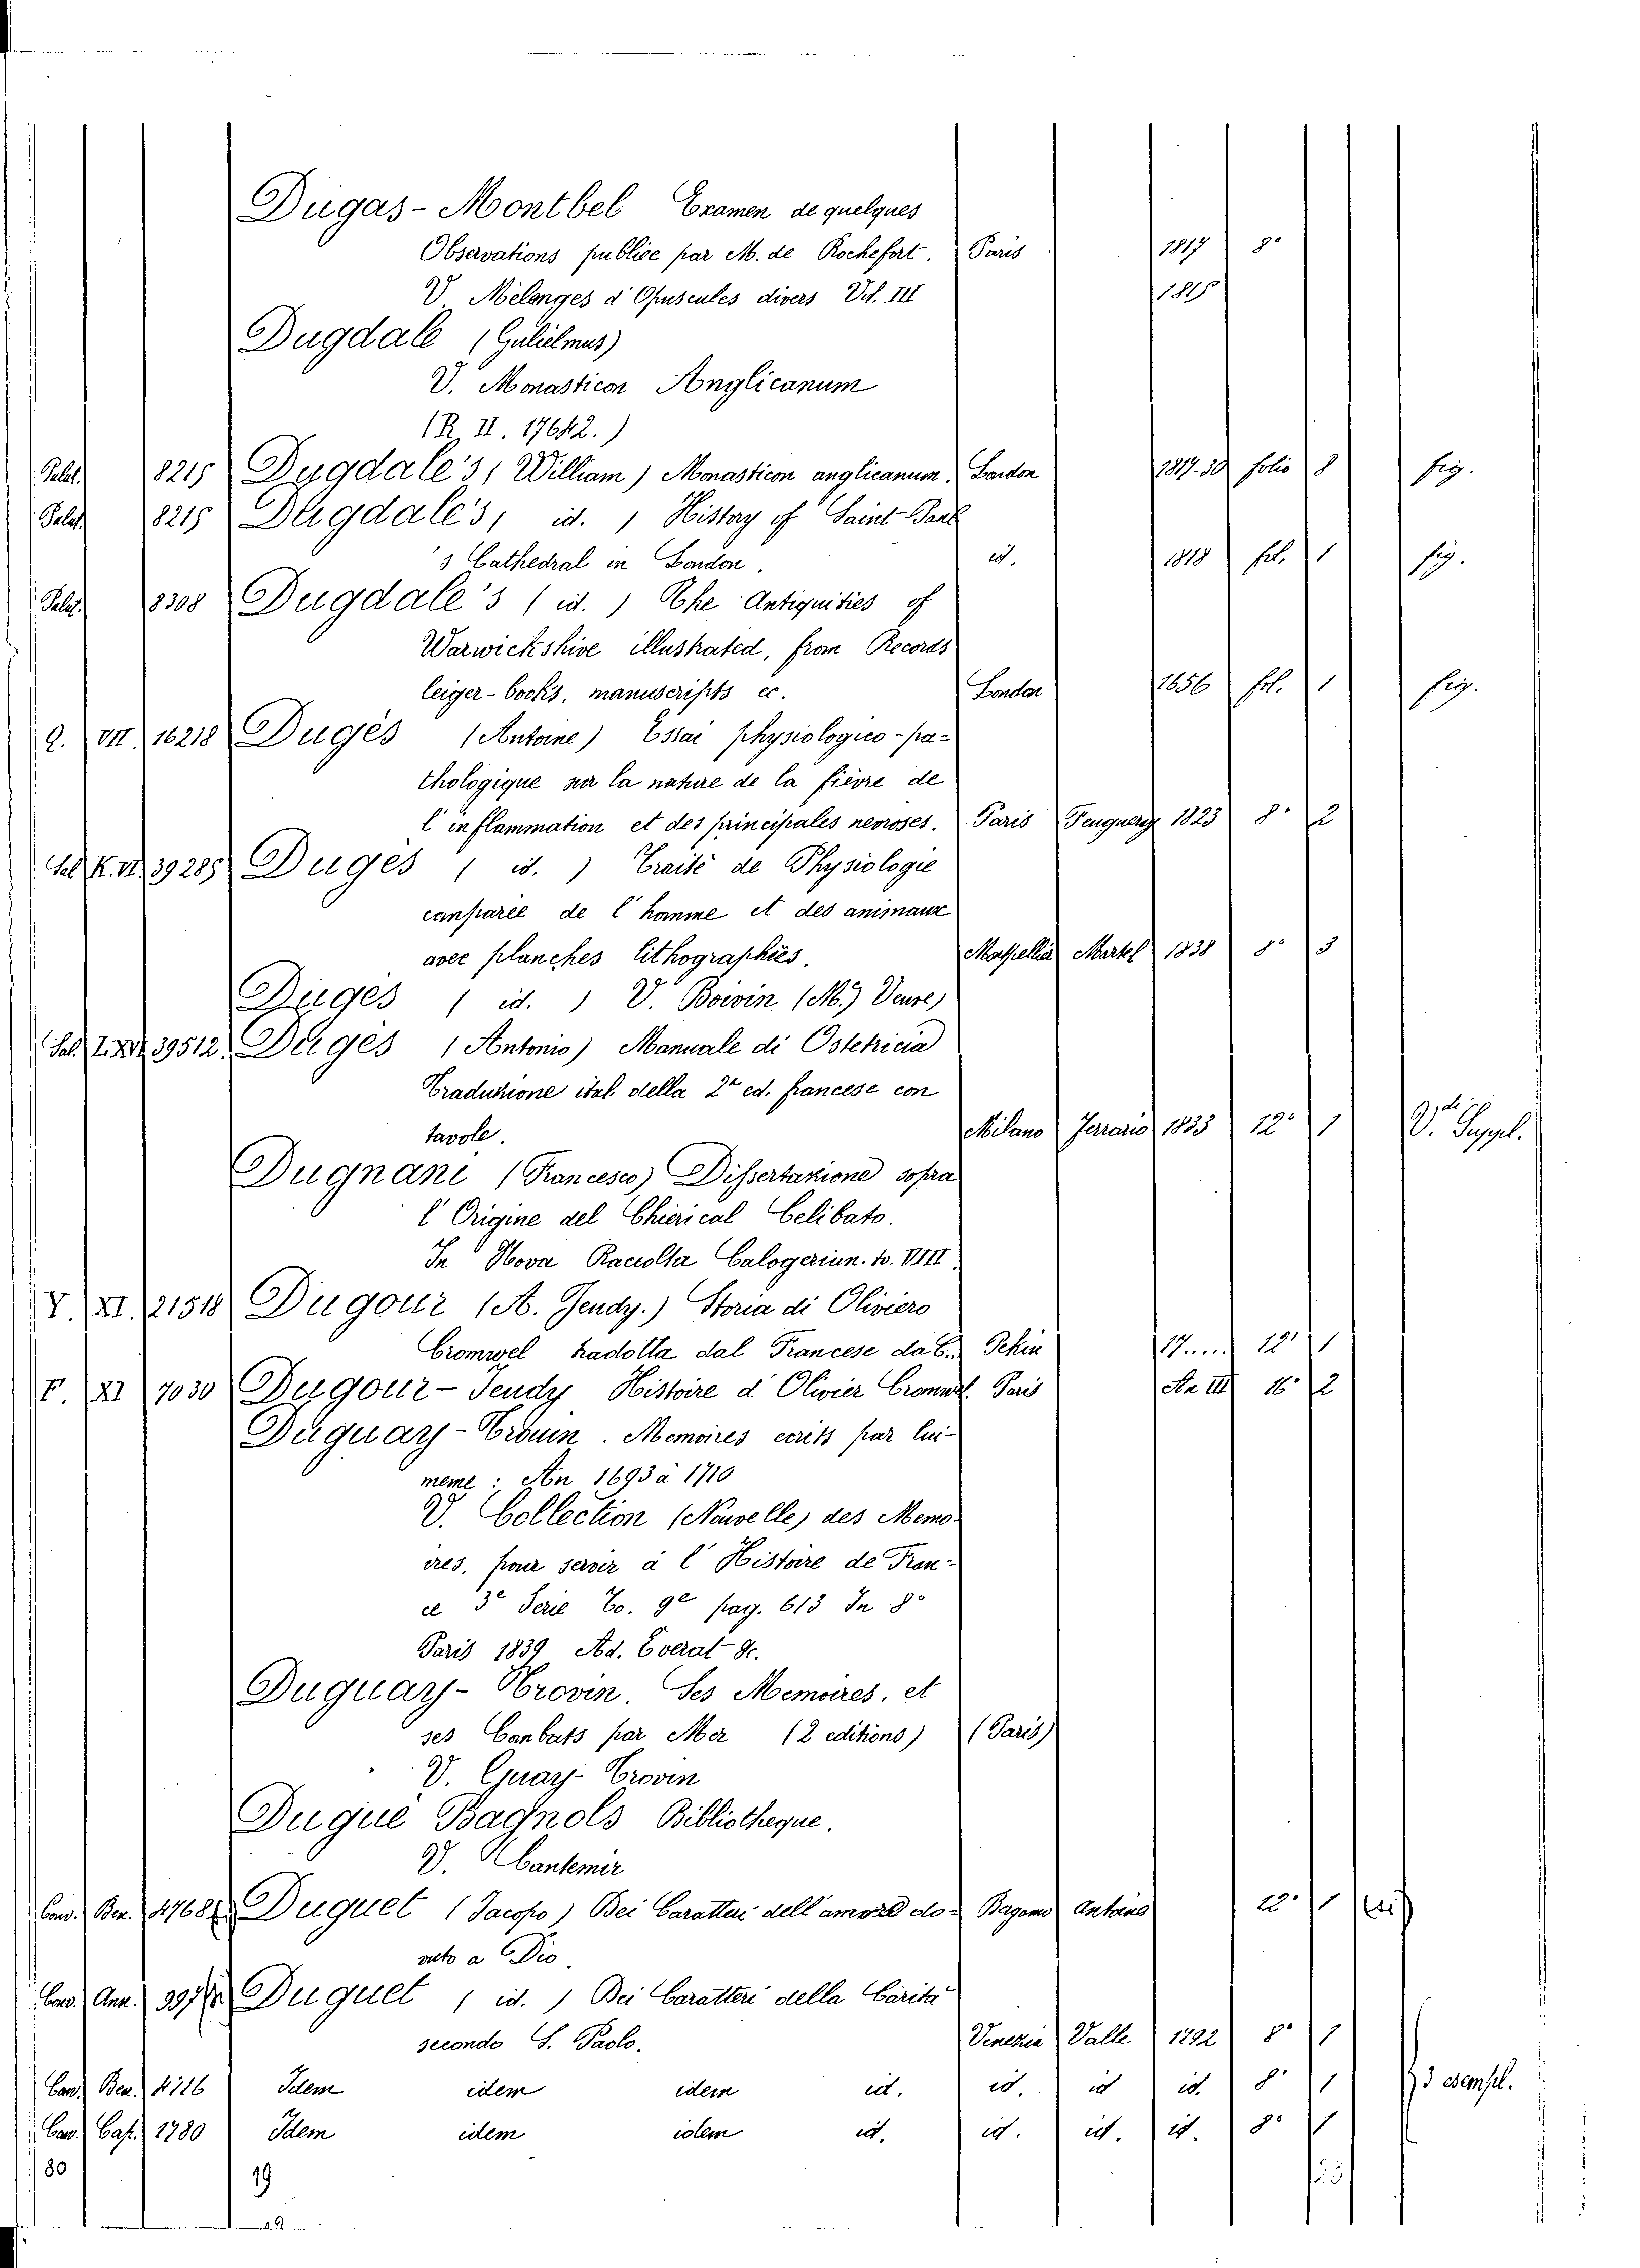 Dugas-Montbel Examen de quelques
Observations publiée par M. de Rochefort. Paris 1817 8°
V. Mélanges d'Opuscules divers Vol. III 1815
Dugdale (Gulielmus)
V. Monasticon Anglicanum
(R. II. 17642.)
Palat. 8215 Dugdale's (William) Monasticon anglicanum. London 1817.30 folio 8 fig.
Palat. 8215 Dugdale's, id. ) History of Saint-Paul
's Cathedral in London. id. 1818 fol. 1 fig.
Palat. 8308 Dugdale's (id.) The Antiquities of
Warwickshire illustrated, from Records
leiger-books, manuscripts ec. London 1656 fol. 1 fig.
Q. VII 16218 Dugès (Antoine) Essai physiologico-pa-
thologique sur la nature de la fièvre de
l'inflammation et des principales nevroses. Paris 1823 8° 2
39285 Dugès ( id. ) Traité de Physiologie
comparée de l'homme et des animaux
avec planches lithographiées. Martel 1838 8° 3
Dugès ( id. ) V. Boivin (M.) Veuve)
Sal. 39512 Dugès (Antonio) Manuale di Ostetricia
Traduzione ital. della 2ª ed. francese con
tavole. Milano Ferrario 1833 12° 1 V. Suppl.
Dugnani (Francesco) Dissertazione sopra
l'Origine del Chierical Celibato.
In Nova Raccolta Calogerian. to. VIII
V. XI. 21518 Dugour (A. Jendy.) Storia di Oliviero
Cromwel tradotta dal Francese da C. Pekin 17.... 12° 1
F. XI 7030 Dugour-Jendy Histoire d'Olivier Cromwel. Paris An III 16° 2
Duguay-Trouin. Memoires ecrits par lui-
meme: An 1693 à 1710
V. Collection (Nouvelle) des Memo-
ires, pour servir à l'Histoire de Fran-
ce 3e Serie To. 9e pag. 613 In 8°
Paris 1839 Ad. Everat &c.
Duguay-Trovin. Ses Memoires, et
ses Conbats par Mer (2 editions) (Paris)
V. Guay-Trovin
Duque Bagnols Bibliotheque.
V. Cantemir
Can. Ben. Duguet (Jacopo) Bei Caratteri dell'amore do- Antoine 12° 1
vuto a Dio.
Can. Ann. Duguet ( id. ) Bei Caratteri della Carita
secondo S. Paolo. Venezia Valle 1792 8° 1
Can. Ben. 4716 Idem idem idem id. id. id id. 8° 1 3 esempl.
Can. Cap. 1780 Idem idem idem id. id. id. id. 8° 1
80 19